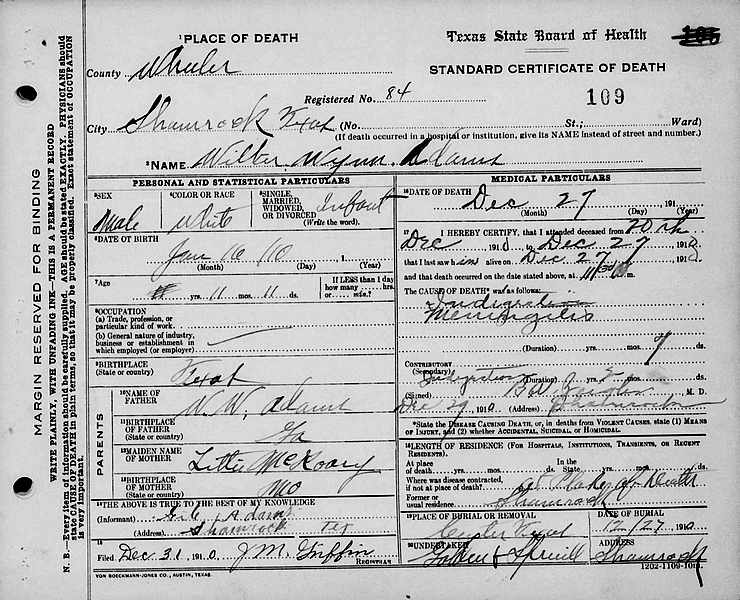 ¹PLACE OF DEATH
Texas State Board of Health
105
County Wheeler
STANDARD CERTIFICATE OF DEATH
Registered No. 84
109
City Shamrock Texas (No. St.; Ward)
(If death occurred in a hospital or institution, give its NAME instead of street and number.)
²NAME Wilber Wynn Adams
PERSONAL AND STATISTICAL PARTICULARS
³SEX Male
⁴COLOR OR RACE White
⁵SINGLE, MARRIED, WIDOWED, OR DIVORCED (Write the word). Infant
⁶DATE OF BIRTH
Jan 16 10 1
(Month) (Day) (Year)
⁷Age yrs. 11 mos. 11 ds.
IF LESS than 1 day how many hrs. or min.?
⁸OCCUPATION
(a) Trade, profession, or
particular kind of work.
(b) General nature of industry,
business or establishment in
which employed (or employer)
⁹BIRTHPLACE
(State or country) Texas
PARENTS
¹⁰NAME OF
FATHER W. W. Adams
¹¹BIRTHPLACE
OF FATHER
(State or country) Ga
¹²MAIDEN NAME
OF MOTHER Littie
¹³BIRTHPLACE
OF MOTHER
(State or country) Mo
¹⁴THE ABOVE IS TRUE TO THE BEST OF MY KNOWLEDGE
(Informant) Adams
(Address) Shamrock Tex
¹⁵
Filed Dec 31 1910 J. M. Griffin
REGISTRAR
VON BOECKMANN-JONES CO., AUSTIN, TEXAS.
MEDICAL PARTICULARS
¹⁶DATE OF DEATH Dec 27 191
(Month) (Day) (Year)
¹⁷ I HEREBY CERTIFY, that I attended deceased from 20th
Dec 1910 to Dec 27 1910
that I last saw him alive on Dec 27 1910
and that death occurred on the date stated above, at m.
The CAUSE OF DEATH* was as follows:
Indigestion
Meningitis
(Duration) yrs. mos. 7 ds.
CONTRIBUTORY
(Secondary) Indigestion
(Duration)
(Signed) M. D.
Dec 29 1910 (Address) Shamrock
*State the DISEASE CAUSING DEATH, or, in deaths from VIOLENT CAUSES, state (1) MEANS
OF INJURY, and (2) whether ACCIDENTAL, SUICIDAL, or HOMICIDAL.
¹⁸LENGTH OF RESIDENCE (FOR HOSPITALS, INSTITUTIONS, TRANSIENTS, OR RECENT
RESIDENTS).
At place of death yrs. mos. ds.
In the State yrs. mos. ds.
Where was disease contracted,
if not at place of death? at Place of Death
Former or
usual residence Shamrock
¹⁹PLACE OF BURIAL OR REMOVAL
DATE OF BURIAL
12/27 1910
²⁰UNDERTAKER
ADDRESS
Shamrock
1202-1109-10m.
MARGIN RESERVED FOR BINDING
WRITE PLAINLY, WITH UNFADING INK—THIS IS A PERMANENT RECORD
N. B.—Every item of information should be carefully supplied. AGE should be stated EXACTLY. PHYSICIANS should
state CAUSE OF DEATH in plain terms, so that it may be properly classified. Exact statement of OCCUPATION
is very important.